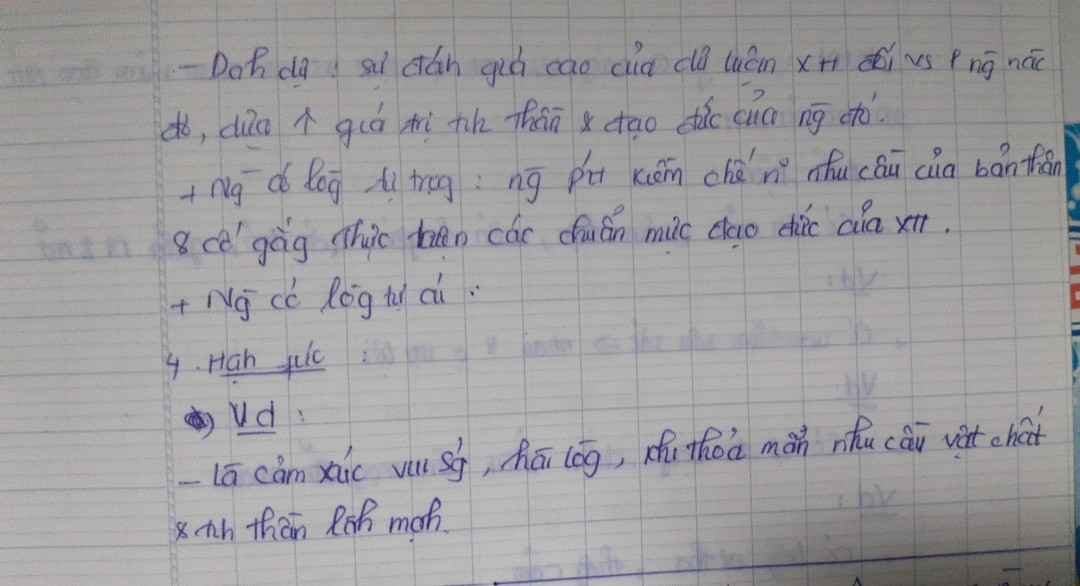 - Dah dự : sự đáh giá cao của dư luận XH đối vs 1 ng nào
đó, dựa ↑ giá trị tih thần & đạo đức của ng đó.
+ Ng có lòg tự trọg : ng phải kiềm chế nh nhu cầu của bản thân
& cố gắg thực hiện các chuẩn mực đạo đức của XH.
+ Ng có lòg tự ái :
4. Hạh fúc :
Vd :
- Là cảm xúc vui sg, hài lòg, khi thoả mãn nhu cầu vật chất
& tih thần làh mạh.